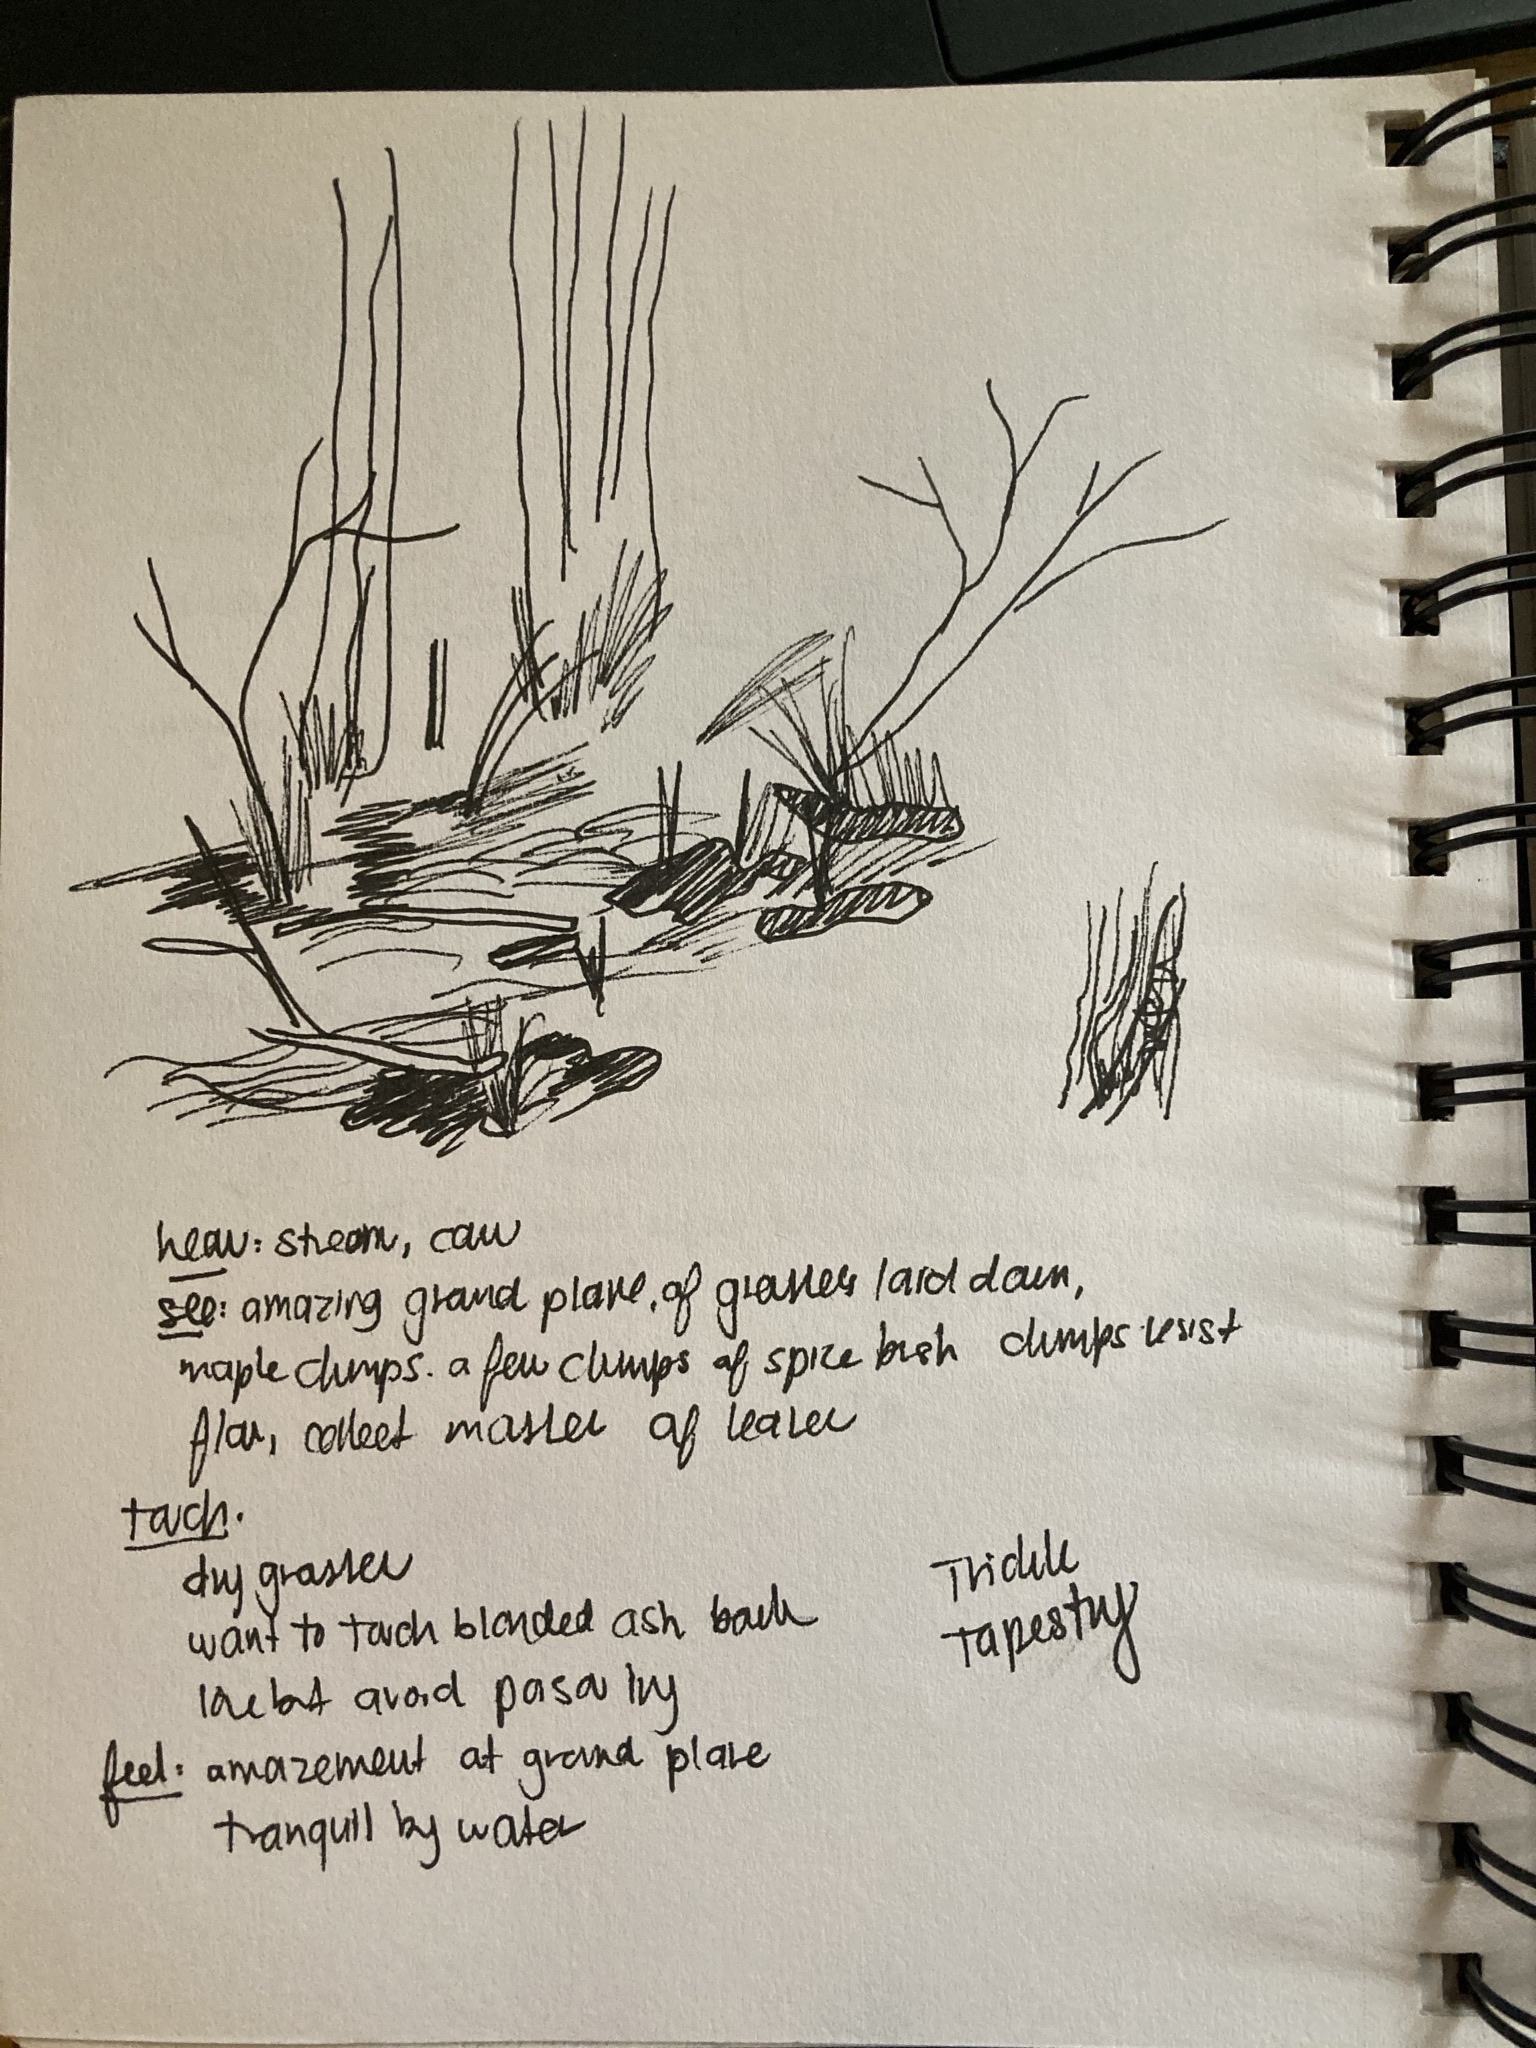 hear: stream, caw
see: amazing grand plane, of grasses laid down,
maple clumps. a few clumps of spice bush clumps resist
flow, collect masses of leaves
touch.
dry grasses
want to touch blonded ash bark
love but avoid poison ivy
feel: amazement at grand plane
tranquill by water
Trickle
Tapestry